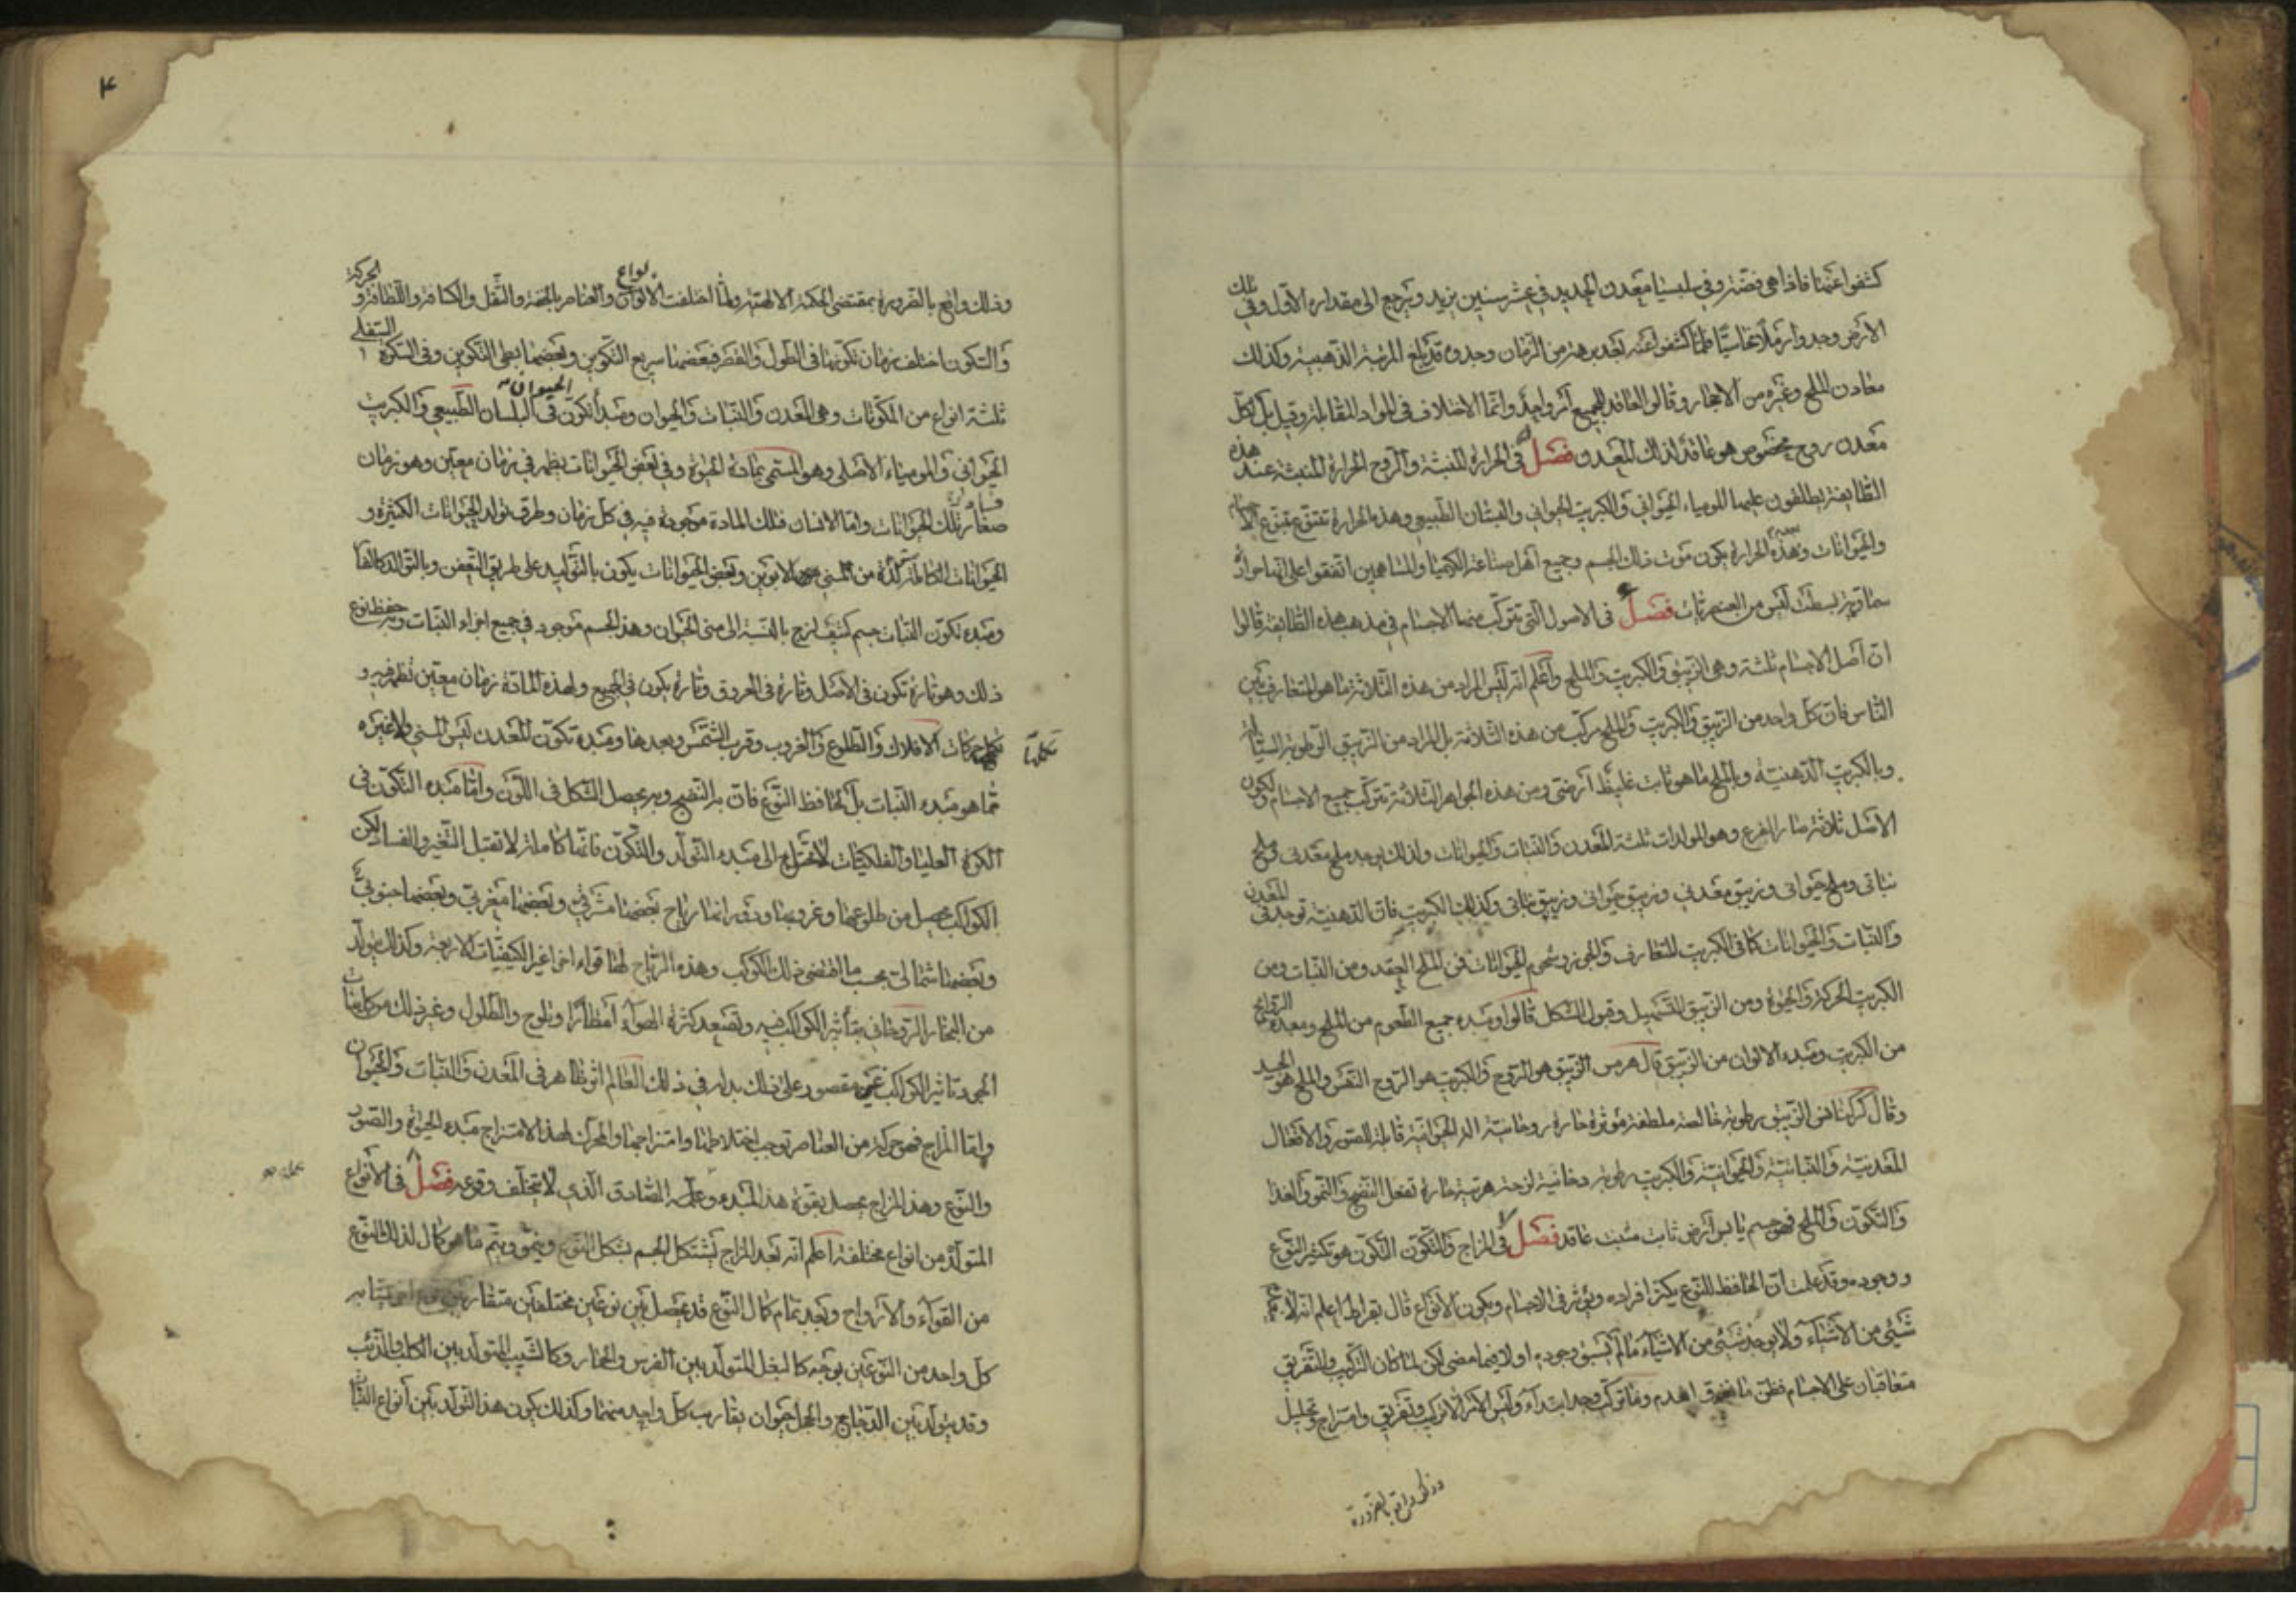 كشفوا عنها فاذا هى فضة وفى سلبسيا معدن الحديد فى عشر سنين يزيد ويرجع الى مقداره الاول وفى تلك
الارض وجدوا رملا نحاسيا فلما كشفوا عنه بعد برهة من الزمان وجدوه قد بلغ المرتبة الذهبية وكذلك
معادن الملح وغيره من الاحجار وقالوا العاقد للجميع امر واحد وانما الاختلاف فى المواد القابلة وقيل بل لكل
معدن روح مخصوص هو عاقد لذلك المعدن فصل فى الحرارة المنبثة والروح الحرارة المنبثة عند هذه
الطايفة يطلقون عليها المومياء الحيوانى والكبريت الحيوانى والبلسان الطبيعى وهذه الحرارة تتنوع بتنوع
والحيوانات وبهذه الحرارة يكون موت ذلك الجسم وجميع اهل صناعة الكيميا والمشاهير اتفقوا على انها حرارة
سماوية بسيطة ليس من العنصريات فصل فى الاصول التى تتركب منها الاجسام فى مذهب هذه الطايفة قالوا
ان اصل الاجسام ثلثة وهى الزيبق والكبريت والملح واعلم انه ليس المراد من هذه الثلاثة ما هو المتعارف بين
الناس فان كل واحد من الزيبق والكبريت والملح مركب من هذه الثلاثة بل المراد من الزيبق الرطوبة السيالة
وبالكبريت الدهنية وبالملح ما هو ثابت غليظ ارضى ومن هذه الجواهر الثلاثة تتركب جميع الاجسام ولكون
الاصل ثلاثة صار الفرع وهو المولدات ثلثة المعدن والنبات والحيوانات ولذلك يوجد ملح معدنى وملح
نباتى وملح حيوانى وزيبق معدنى وزيبق حيوانى وزيبق نباتى وكذلك الكبريت فان الدهنية توجد فى المعدن
والنبات والحيوانات كما فى الكبريت المتعارف والجوز وشحوم الحيوانات فمن الملح العقد ومن النبات ومن
الكبريت الحركة والحيوة ومن الزيبق التسهيل وقبول الشكل قالوا ومبدء جميع الطعوم من الملح ومبدء الروايح
من الكبريت ومبدء الالوان من الزيبق قال هرمس الزيبق هو الروح والكبريت هو الروح النفس والملح هو الجسد
وقال الزيبق رطوبة خالصة ملطفة مؤثرة حارة روحانية الة الحيوانية قابلة للصور والافعال
المعدنية والنباتية والحيوانية والكبريت رطوبة دخانية لزجة حارة تفعل النضج والنمو والغذا
والتكون والملح فهو جسم يابس ارض ثابت مثبت عاقد فصل فى المزاج والتكون التكون هو تكثير النوع
ووجوده وقد علمت ان الحافظ للنوع يكثر افراده ويؤثر فى الاجسام ويكون الانواع قال بقراط اعلم انه لا
شيئ من الاشياء ولا يوجد شيئ من الاشياء ما لم يسبق وجوده اولا فيما مضى لكن لما كان التركيب والتفريق
متعاقبان على الاجسام فظن ما تفرق انعدم وما تركب وجد ابتداء وليس الامر الا تركيب وتفريق وامتزاج وتحليل
وذلك واقع بالضرورة
۴
وذلك واقع بالضرورة بمقتضى الحكمة الالهية ولما اختلفت الالوان انواع والعناصر بالخفة والثقل والكثافة واللطافة و الحركة
والتكون اختلف زمان تكونها فى الطول والقصر فبعضها سريع التكوين وبعضها بطى التكوين وفى الكرة السفلى
ثلثة انواع من المكونات وهى المعدن والنبات والحيوان ومبدأ تكون فى الحيوان البلسان الطبيعى والكبريت
الحيوانى والمومياء الاصلى وهو المسمى بمادة الحيوة وفى بعض الحيوانات يظهر فى زمان معين وهو زمان
تلك الحيوانات واما الانسان فتلك المادة موجودة فيه فى كل زمان وطرق تولد الحيوانات الكثيرة و
الحيوانات الكاملة من المنى الابوين وبعض الحيوانات يكون بالتوليد على طريق التعفن وبالتوالد كالفا
ومبدء تكون النبات جسم كثيف لزج بالنسبة الى منى الحيوان وهذا الجسم موجود فى جميع اجزاء النبات وبه حفظ نوع
ذلك وهو تارة تكون فى الاصل وتارة فى العروق وتارة يكون فى الجميع ولهذه المادة زمان معين تظهر فيه و
حركات الافلاك والطلوع والغروب وقرب الشمس وبعدها ومبدء تكون المعدن ليس المنى ولا غيره
مما هو مبدء النبات بل الحافظ النوع فان به النضج وبه يحصل الشكل فى اللون واما مبدء التكون فى
الكرة العليا والفلكيات لا تحتاج الى مبدء التوالد والتكون فانها كاملة لا تقبل التغير والفساد لكن
الكواكب يحصل من طلوعها وغروبها ودورانها رياح بعضها مشرقى وبعضها مغربى وبعضها جنوبى
وبعضها شمالى بحسب ما اقتضى ذلك الكوكب وهذه الرياح لها قواء اخر غير الكيفيات الاربعة وكذلك يتولد
من البخار الروحانى بتأثير الكواكب فيه وتصعد كثرة الصواء امطارا وثلوج والطلول وغير ذلك من كاينات
الجو تأثير الكواكب غير مقصور على ذلك بل فى ذلك العالم اثره ظاهر فى المعدن والنبات والحيوان
واما المزاج فهو حركة من العناصر توجب اختلاطها وامتزاجها والمحرك لهذا الامتزاج مبدء الحيوة والصور
والنوع وهذا المزاج يحصل بقوة هذا المبدء وعلمه الصادق الذى لا يتخلف وقوعه فصل فى الانواع
المتولد من انواع مختلفة اعلم انه بعد المزاج يتشكل الجسم بشكل النوع وينمو ويتم ما هو كمال لذلك النوع
من القواء والارواح وبعد تمام كمال النوع قد يحصل بين نوعين مختلفين
كل واحد من النوعين بوجه كالبغل المتولد بين الفرس والحمار وكالشيب المتولد بين الكلب والذئب
وقد يتولد بين الدجاج والحجل حيوان يقارب كل واحد منهما وكذلك يكون هذا التولد بين انواع النبات